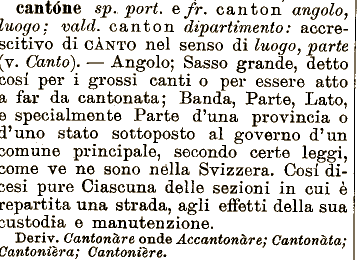 cantóne sp. port. e fr. canton angolo,
luogo; vald. canton dipartimento: accre-
scitivo di CÀNTO nel senso di luogo, parte
(v. Canto). — Angolo; Sasso grande, detto
cosí per i grossi canti o per essere atto
a far da cantonata; Banda, Parte, Lato,
e specialmente Parte d'una provincia o
d'uno stato sottoposto al governo d'un
comune principale, secondo certe leggi,
come ve ne sono nella Svizzera. Cosí di-
cesi pure Ciascuna delle sezioni in cui è
repartita una strada, agli effetti della sua
custodia e manutenzione.
Deriv. Cantonàre onde Accantonàre; Cantonàta;
Cantonièra; Cantonière.